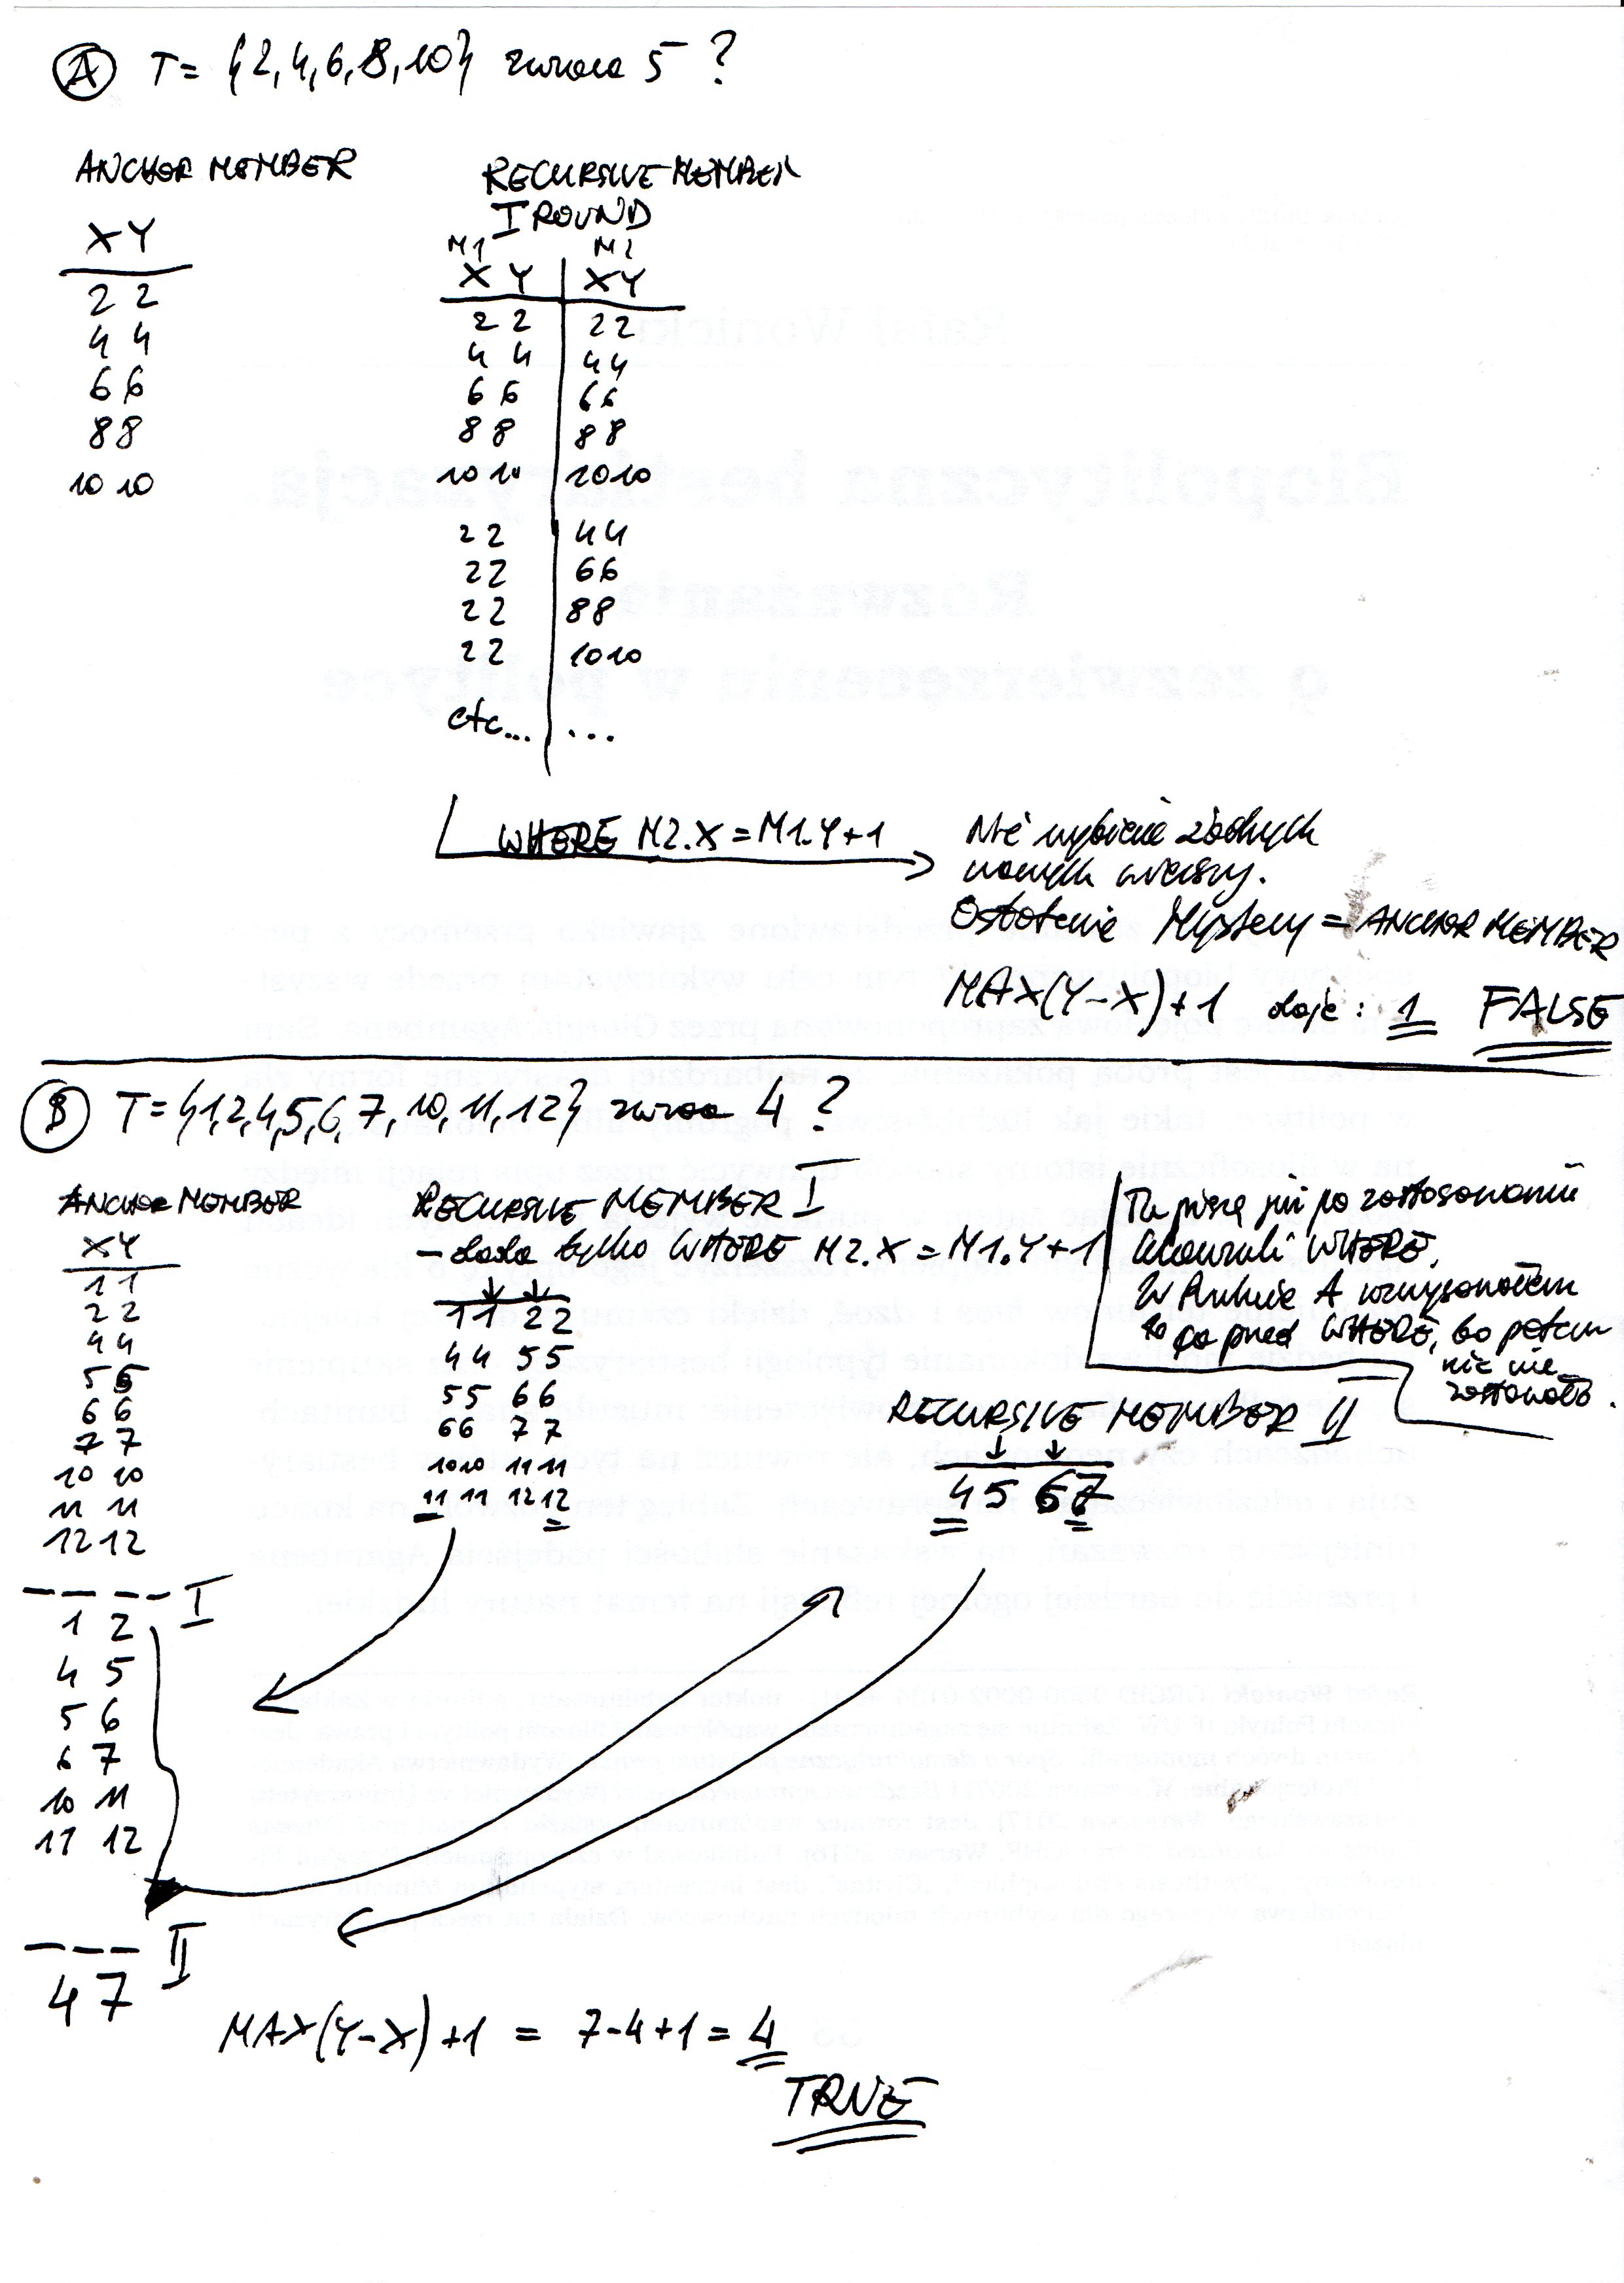 Ⓐ T = {2,4,6,8,10} zwraca 5 ?
ANCHOR MEMBER
X Y
2 2
4 4
6 6
8 8
10 10
RECURSIVE MEMBER
I ROUND
M1 M2
X Y X Y
2 2 2 2
4 4 4 4
6 6 6 6
8 8 8 8
10 10 10 10
2 2 4 4
2 2 6 6
2 2 8 8
2 2 10 10
etc... ...
WHERE M2.X = M1.Y+1
Nie wybierze żadnych
nowych wierszy.
Ostatecznie Mystery = ANCHOR MEMBER
MAX(Y-X)+1 daje: 1 FALSE
Ⓑ T = {1,2,4,5,6,7,10,11,12} zwraca 4 ?
ANCHOR MEMBER
X Y
1 1
2 2
4 4
5 5
6 6
7 7
10 10
11 11
12 12
---- I
1 2
4 5
5 6
6 7
10 11
11 12
--- II
4 7
RECURSIVE MEMBER I
- doda tylko WHERE M2.X = M1.Y+1
1 1 2 2
4 4 5 5
5 5 6 6
6 6 7 7
10 10 11 11
11 11 12 12
Tu piszę już po zastosowaniu
klauzuli WHERE.
W Punkcie A wypisałem
to przed WHERE, bo potem
nic nie
zostawało.
RECURSIVE MEMBER II
4 5 6 7
MAX(Y-X)+1 = 7-4+1 = 4
TRUE